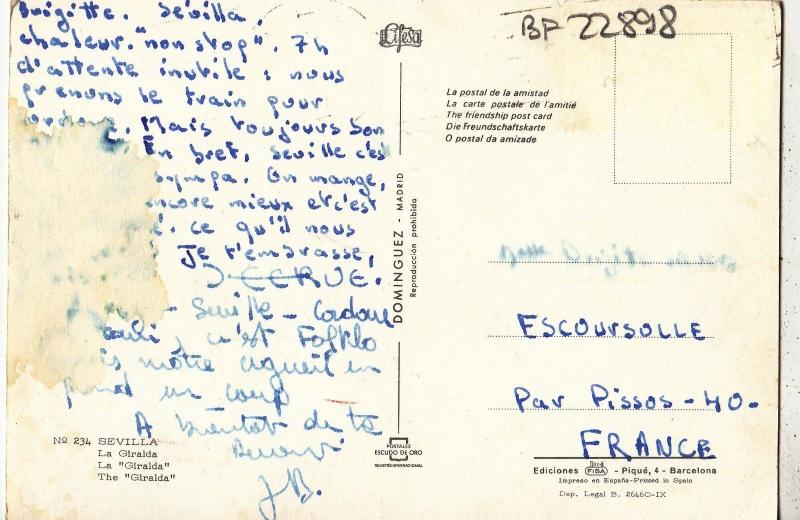 Brigitte. Sévilla.
chaleur. "non stop". 7h
d'attente inutile : nous
prenons le train pour
Mais toujours bon
En bref, seville c'es
sympa. On mange,
encore mieux et c'est
ce qu'il nous
Je t'embrasse,
- Seville - Cordoue
c'est Folklo
is notre
en
un coup
A bientot de te
J B.
Nº 234 SEVILLA
La Giralda
La "Giralda"
The "Giralda"
Cifesa
DOMINGUEZ - MADRID
Reproducción prohibida
POSTALES
ESCUDO DE ORO
REGISTRO INTERNACIONAL
BF 22898
La postal de la amistad
La carte postale de l'amitié
The friendship post card
Die Freundschaftskarte
O postal da amizade
ESCOURSOLLE
Par Pissos - 40.
FRANCE
Ediciones FISA - Piqué, 4 - Barcelona
Impreso en España-Printed in Spain
Dep. Legal B. 26460-IX